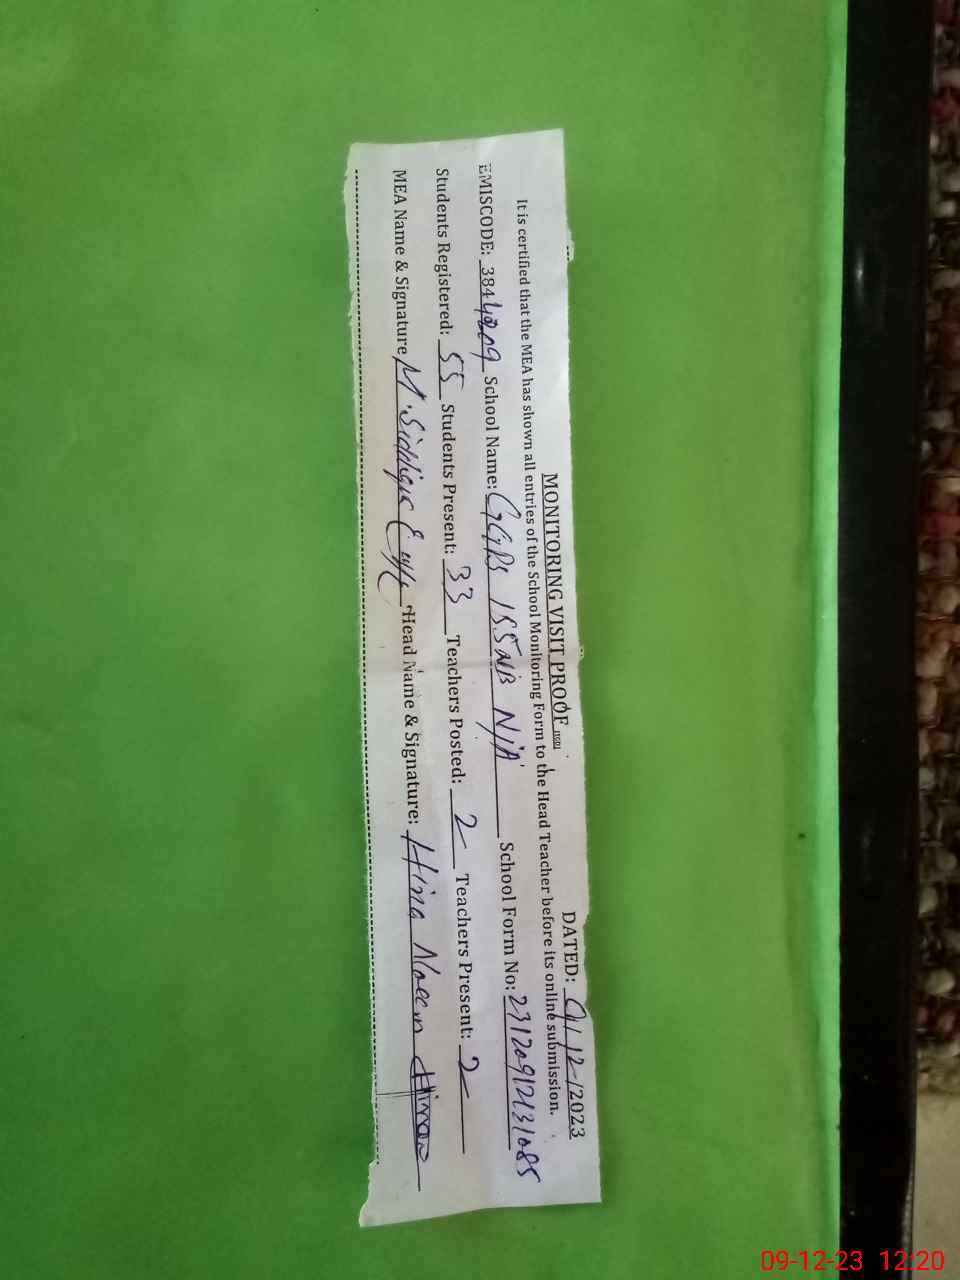 MONITORING VISIT PROOF DATED: 9/12/2023
It is certified that the MEA has shown all entries of the School Monitoring Form to the Head Teacher before its online submission.
EMISCODE: 384 School Name: GGPS 155NB School Form No: 23120912131085
Students Registered: 55 Students Present: 33 Teachers Posted: 2 Teachers Present: 2
MEA Name & Signature M. Siddique Head Name & Signature: Hina Naeem
09-12-23 12:20